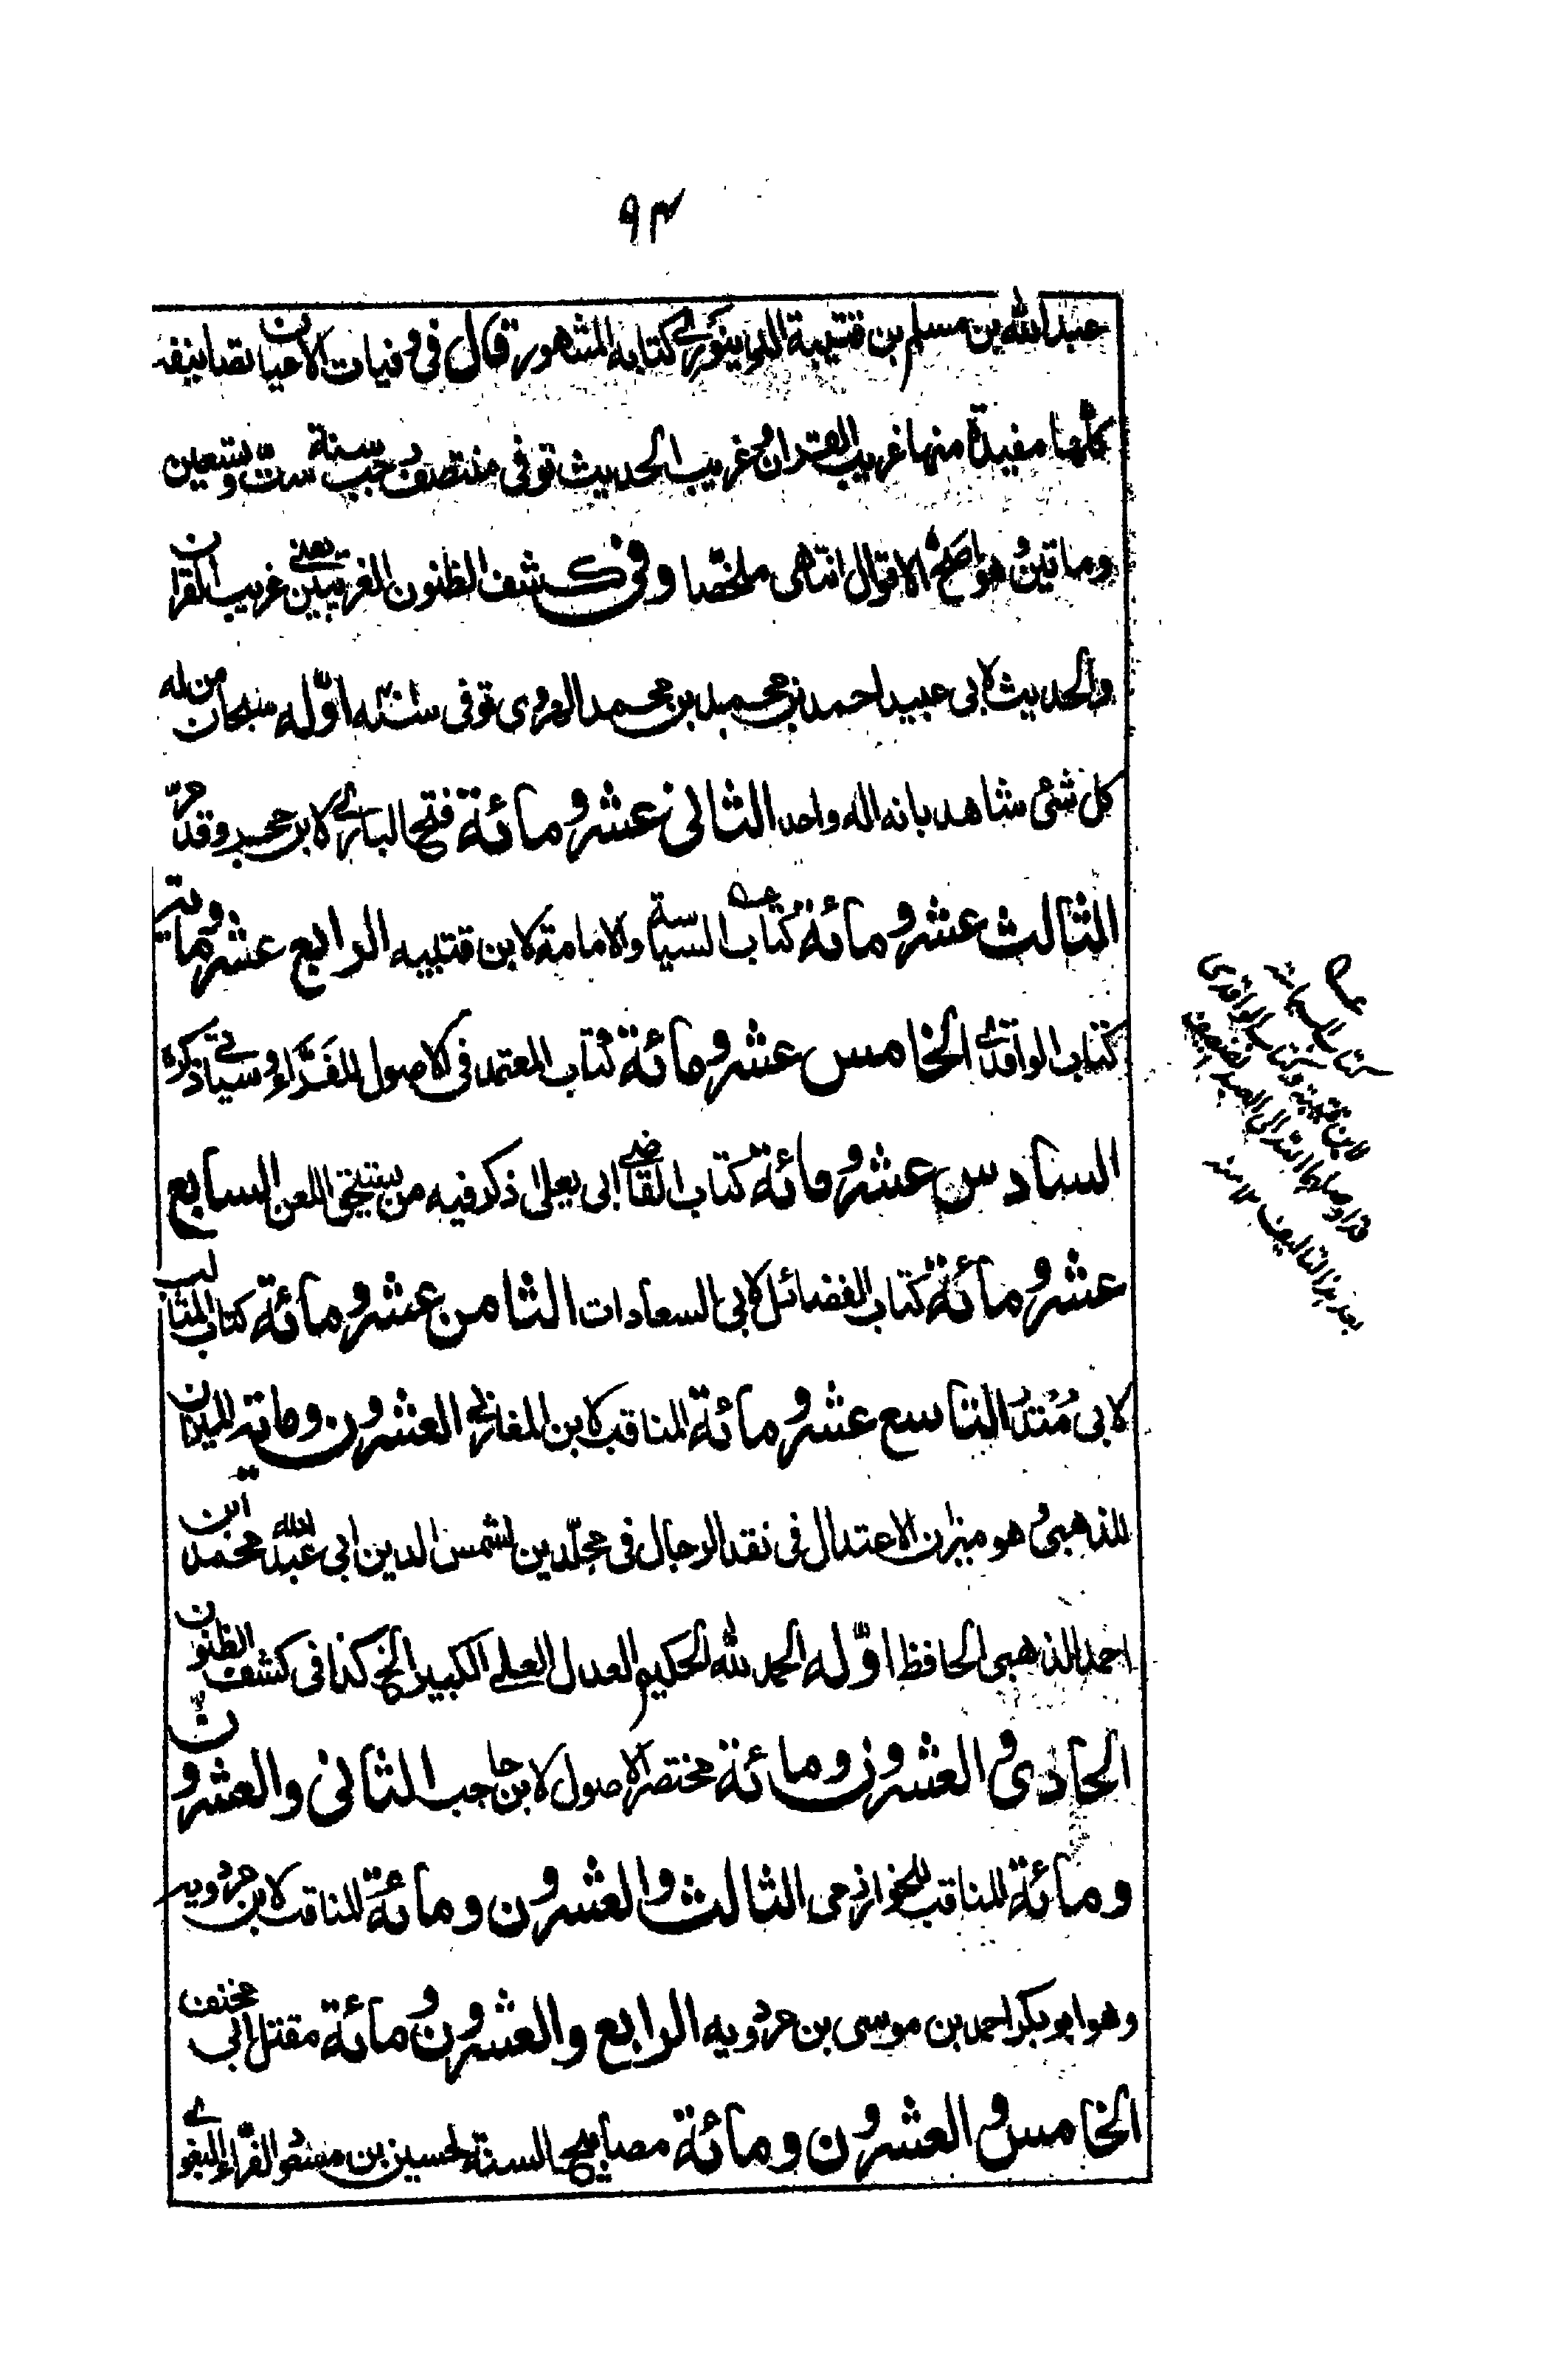 ٩٣
عبد الله بن مسلم بن قتيبة الدينوري كتابه المشهور قال في وفيات الاعيان تصانيفه
كلها مفيدة منها غريب القران وغريب الحديث توفي منتصف رجب سنة ست وسبعين
وماتين وهو اصح الاقوال انتهى ملخصا وفي كشف الظنون الغريبين يعنى غريب القران
والحديث لابي عبيد احمد بن محمد بن محمد الهروي توفى سنة اوّله سبحان من له
كل شئ شاهد بانه اله واحد الثاني عشر ومائة فتح الباري لابن حجر وقد مرّ
الثالث عشر ومائة كتاب السياسة والامامة لابن قتيبه الرابع عشر وماية
كتاب الواقدي الخامس عشر ومائة كتاب المعتمد في الاصول للفرّاء وسياتي ذكره
السادس عشر ومائة كتاب القاضي ابي يعلى ذكر فيه من يستحق اللعن السابع
عشر ومائة كتاب الفضائل لابي السعادات الثامن عشر ومائة كتاب المثالب
لابي منذر التاسع عشر ومائة المناقب لابن المغازلي العشرون وماية الميزان
للذهبي وهو ميزان الاعتدال في نقد الرجال في مجلّدين لشمس الدين ابي عبد الله محمد ابن
احمد الذهبي الحافظ اوّله الحمد لله الحكيم العدل العلي الكبير الخ كذا في كشف الظنون
الحادي والعشرون ومائة مختصر الاصول لابن حاجب الثاني والعشرون
ومائة المناقب للخوارزمي الثالث والعشرون ومائة المناقب لابن مردويه
وهو ابو بكر احمد بن موسى بن مردويه الرابع والعشرون ومائة مقتل ابي مخنف
الخامس والعشرون ومائة مصابيح السنة لحسين بن مسعود الفرّاء البغوي
كتاب السياسة
لابن قتيبة وكتاب الواقدي
بعد هذا التاليف ١٢ منه